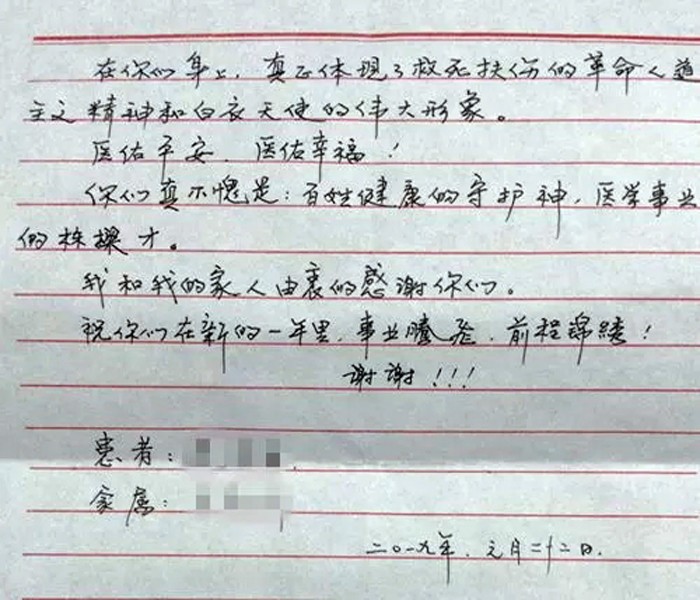 在你们身上，真正体现了救死扶伤的革命人道
主义精神和白衣天使的伟大形象。
医佑平安，医佑幸福！
你们真不愧是：百姓健康的守护神，医学事业
的栋梁才。
我和我的家人由衷的感谢你们。
祝你们在新的一年里，事业腾飞，前程锦绣！
谢谢！！！
患者：
家属：
二〇一九年，元月二十二日.